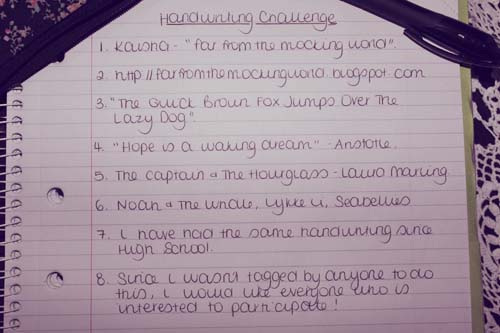 Handwriting Challenge
1. Kavsha - "far from the mocking world".
2. http://farfromthemockingworld.blogspot.com
3. "The Quick Brown Fox Jumps Over The
Lazy Dog"
4. "Hope is a waking dream" - Aristotle.
5. The Captain & The Hourglass - Laura Marling.
6. Noah & The Whale, Lykke Li, Seabellies
7. I have had the same handwriting since
High School.
8. Since I wasn't tagged by anyone to do
this, I would like everyone who is
interested to participate!